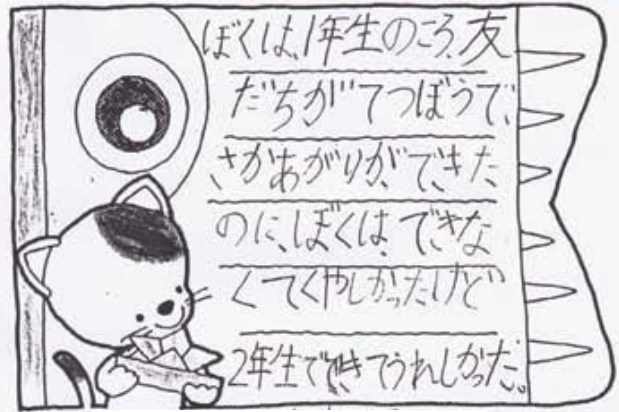 ぼくは、1年生のころ、友
だちがてつぼうで、
さかあがりが、できた
のに、ぼくは、できな
くてくやしかったけど
2年生でできてうれしかった。